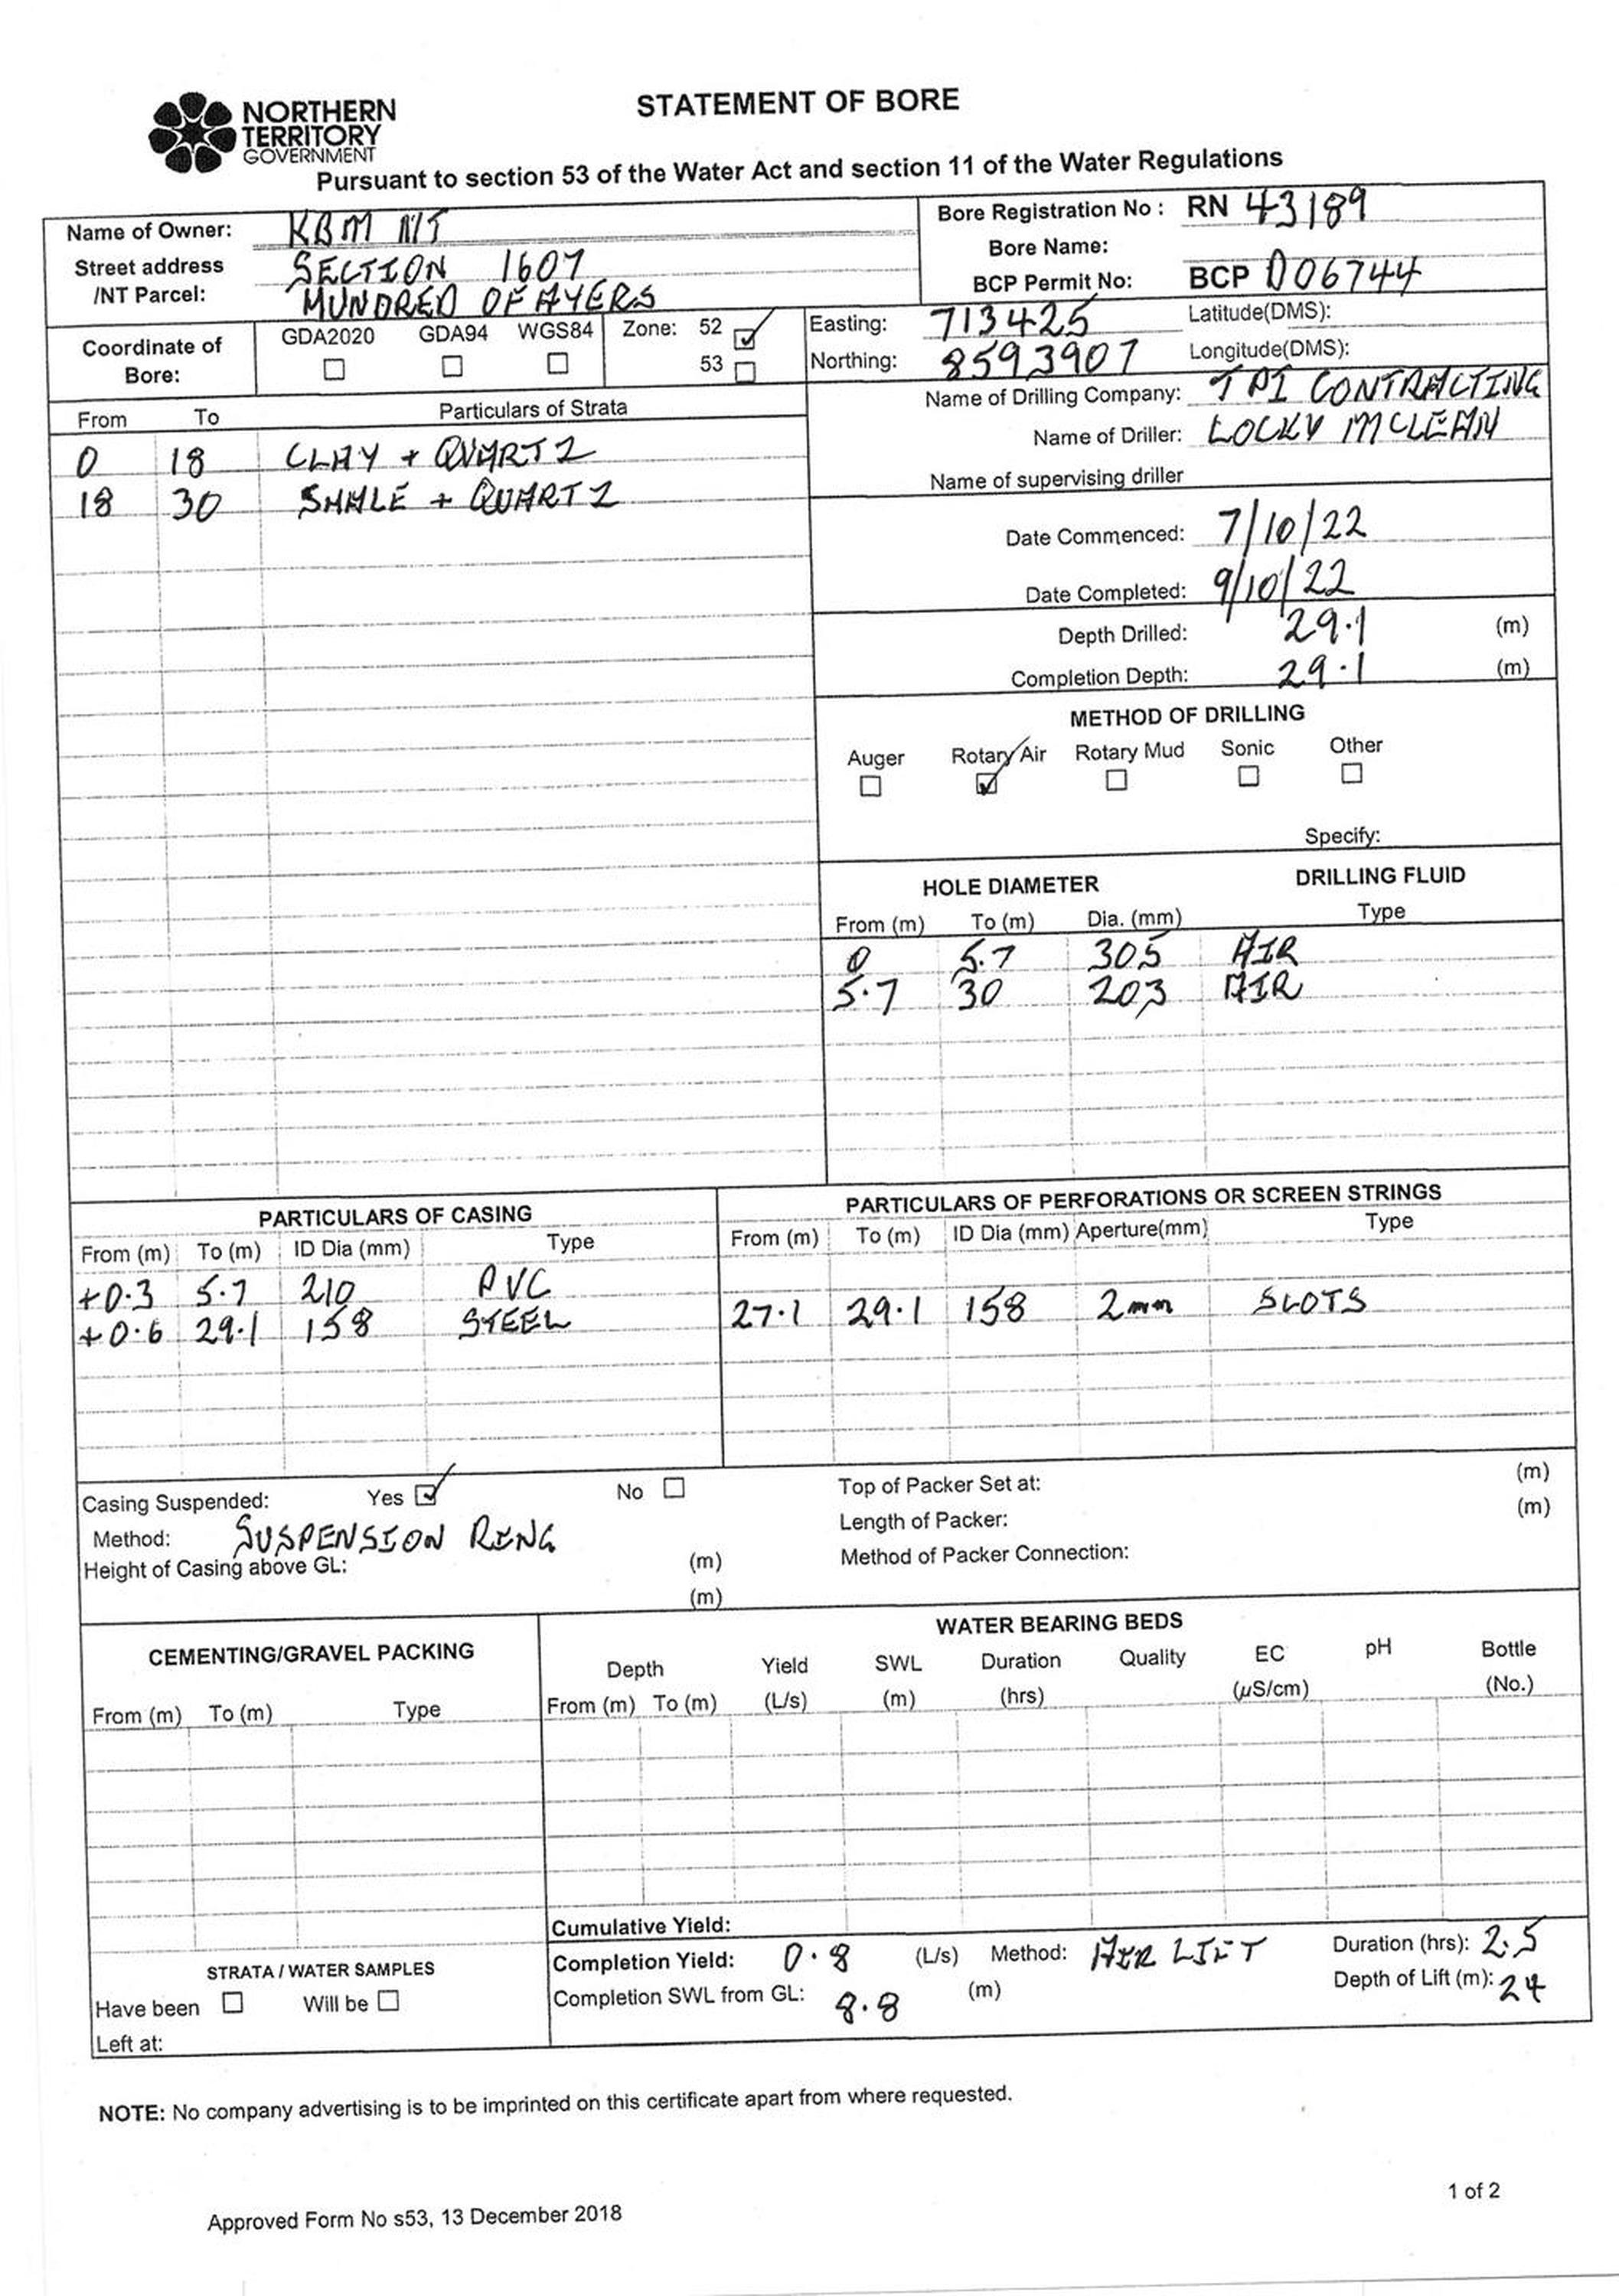 NORTHERN
TERRITORY
GOVERNMENT
STATEMENT OF BORE
Pursuant to section 53 of the Water Act and section 11 of the Water Regulations
Name of Owner: KBM NT
Street address SECTION 1607
/NT Parcel: HUNDRED OF AYERS
Bore Registration No : RN 43189
Bore Name:
BCP Permit No: BCP D06744
Coordinate of Bore: GDA2020 GDA94 WGS84 Zone: 52 53
Easting: 713425 Latitude(DMS):
Northing: 8593907 Longitude(DMS):
From To Particulars of Strata
0 18 CLAY + QUARTZ
18 30 SHALE + QUARTZ
Name of Drilling Company: TPI CONTRACTING
Name of Driller: LOCKY MCLEAN
Name of supervising driller
Date Commenced: 7/10/22
Date Completed: 9/10/22
Depth Drilled: 29.1 (m)
Completion Depth: 29.1 (m)
METHOD OF DRILLING
Auger Rotary Air Rotary Mud Sonic Other
Specify:
HOLE DIAMETER DRILLING FLUID
From (m) To (m) Dia. (mm) Type
0 5.7 305 AIR
5.7 30 203 AIR
PARTICULARS OF CASING
From (m) To (m) ID Dia (mm) Type
+0.3 5.7 210 PVC
+0.6 29.1 158 STEEL
PARTICULARS OF PERFORATIONS OR SCREEN STRINGS
From (m) To (m) ID Dia (mm) Aperture(mm) Type
27.1 29.1 158 2mm SLOTS
Casing Suspended: Yes No
Method: SUSPENSION RING
Height of Casing above GL: (m)
(m)
Top of Packer Set at: (m)
Length of Packer: (m)
Method of Packer Connection:
CEMENTING/GRAVEL PACKING
From (m) To (m) Type
WATER BEARING BEDS
Depth Yield SWL Duration Quality EC pH Bottle
From (m) To (m) (L/s) (m) (hrs) (µS/cm) (No.)
Cumulative Yield:
Completion Yield: 0.8 (L/s) Method: AIR LIFT Duration (hrs): 2.5
Completion SWL from GL: 8.8 (m) Depth of Lift (m): 24
STRATA / WATER SAMPLES
Have been Will be
Left at:
NOTE: No company advertising is to be imprinted on this certificate apart from where requested.
1 of 2
Approved Form No s53, 13 December 2018